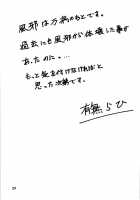 風邪は万病のもとです。
過去にも風邪から体壊した事が
あったのに…。
もっと気を付けなければと
思った次第です。
有無らひ